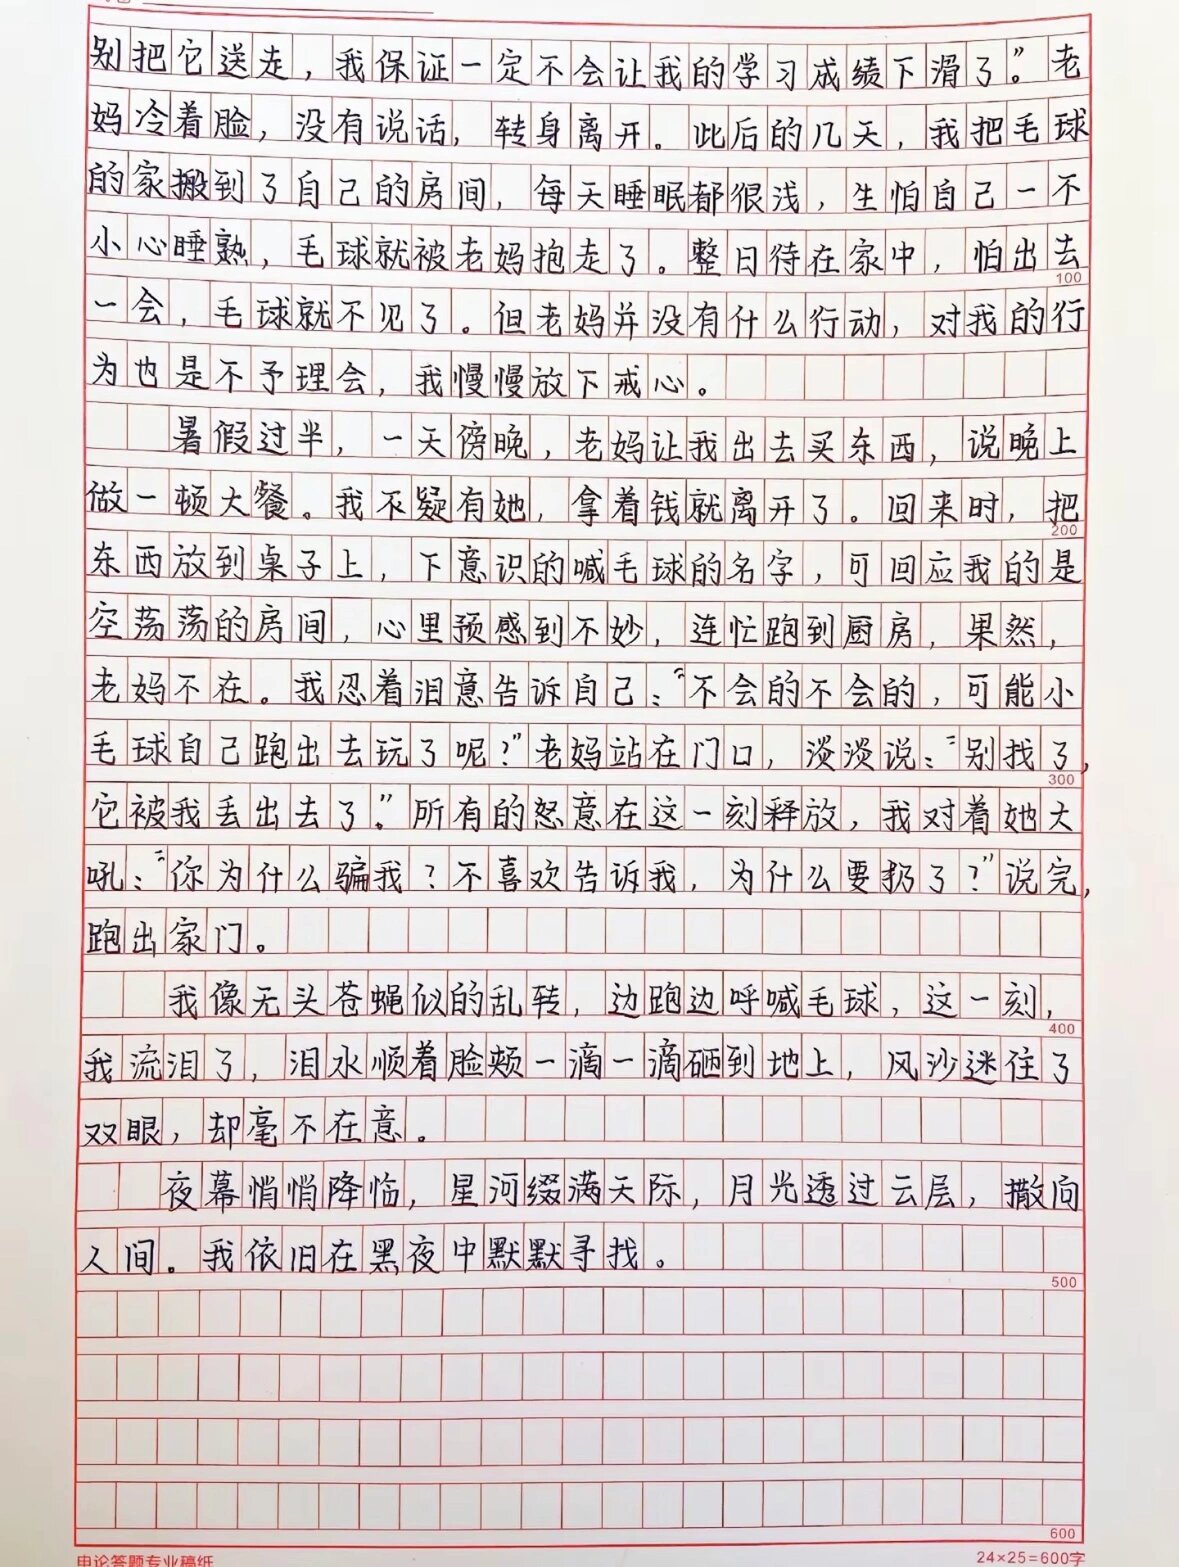 别把它送走，我保证一定不会让我的学习成绩下滑了”。老
妈冷着脸，没有说话，转身离开。此后的几天，我把毛球
的家搬到了自己的房间，每天睡眠都很浅，生怕自己一不
小心睡熟，毛球就被老妈抱走了。整日待在家中，怕出去
100
一会，毛球就不见了。但老妈并没有什么行动，对我的行
为也是不予理会，我慢慢放下戒心。
暑假过半，一天傍晚，老妈让我出去买东西，说晚上
做一顿大餐。我不疑有她，拿着钱就离开了。回来时，把
200
东西放到桌子上，下意识的喊毛球的名字，可回应我的是
空荡荡的房间，心里预感到不妙，连忙跑到厨房，果然，
老妈不在。我忍着泪意告诉自己：“不会的不会的，可能小
毛球自己跑出去玩了呢？”老妈站在门口，淡淡说：“别找了，
300
它被我丢出去了”。所有的怒意在这一刻释放，我对着她大
吼：“你为什么骗我？不喜欢告诉我，为什么要扔了？”说完，
跑出家门。
我像无头苍蝇似的乱转，边跑边呼喊毛球，这一刻，
400
我流泪了，泪水顺着脸颊一滴一滴砸到地上，风沙迷住了
双眼，却毫不在意。
夜幕悄悄降临，星河缀满天际，月光透过云层，撒向
人间。我依旧在黑夜中默默寻找。
500
600
申论答题专业稿纸
24×25=600字